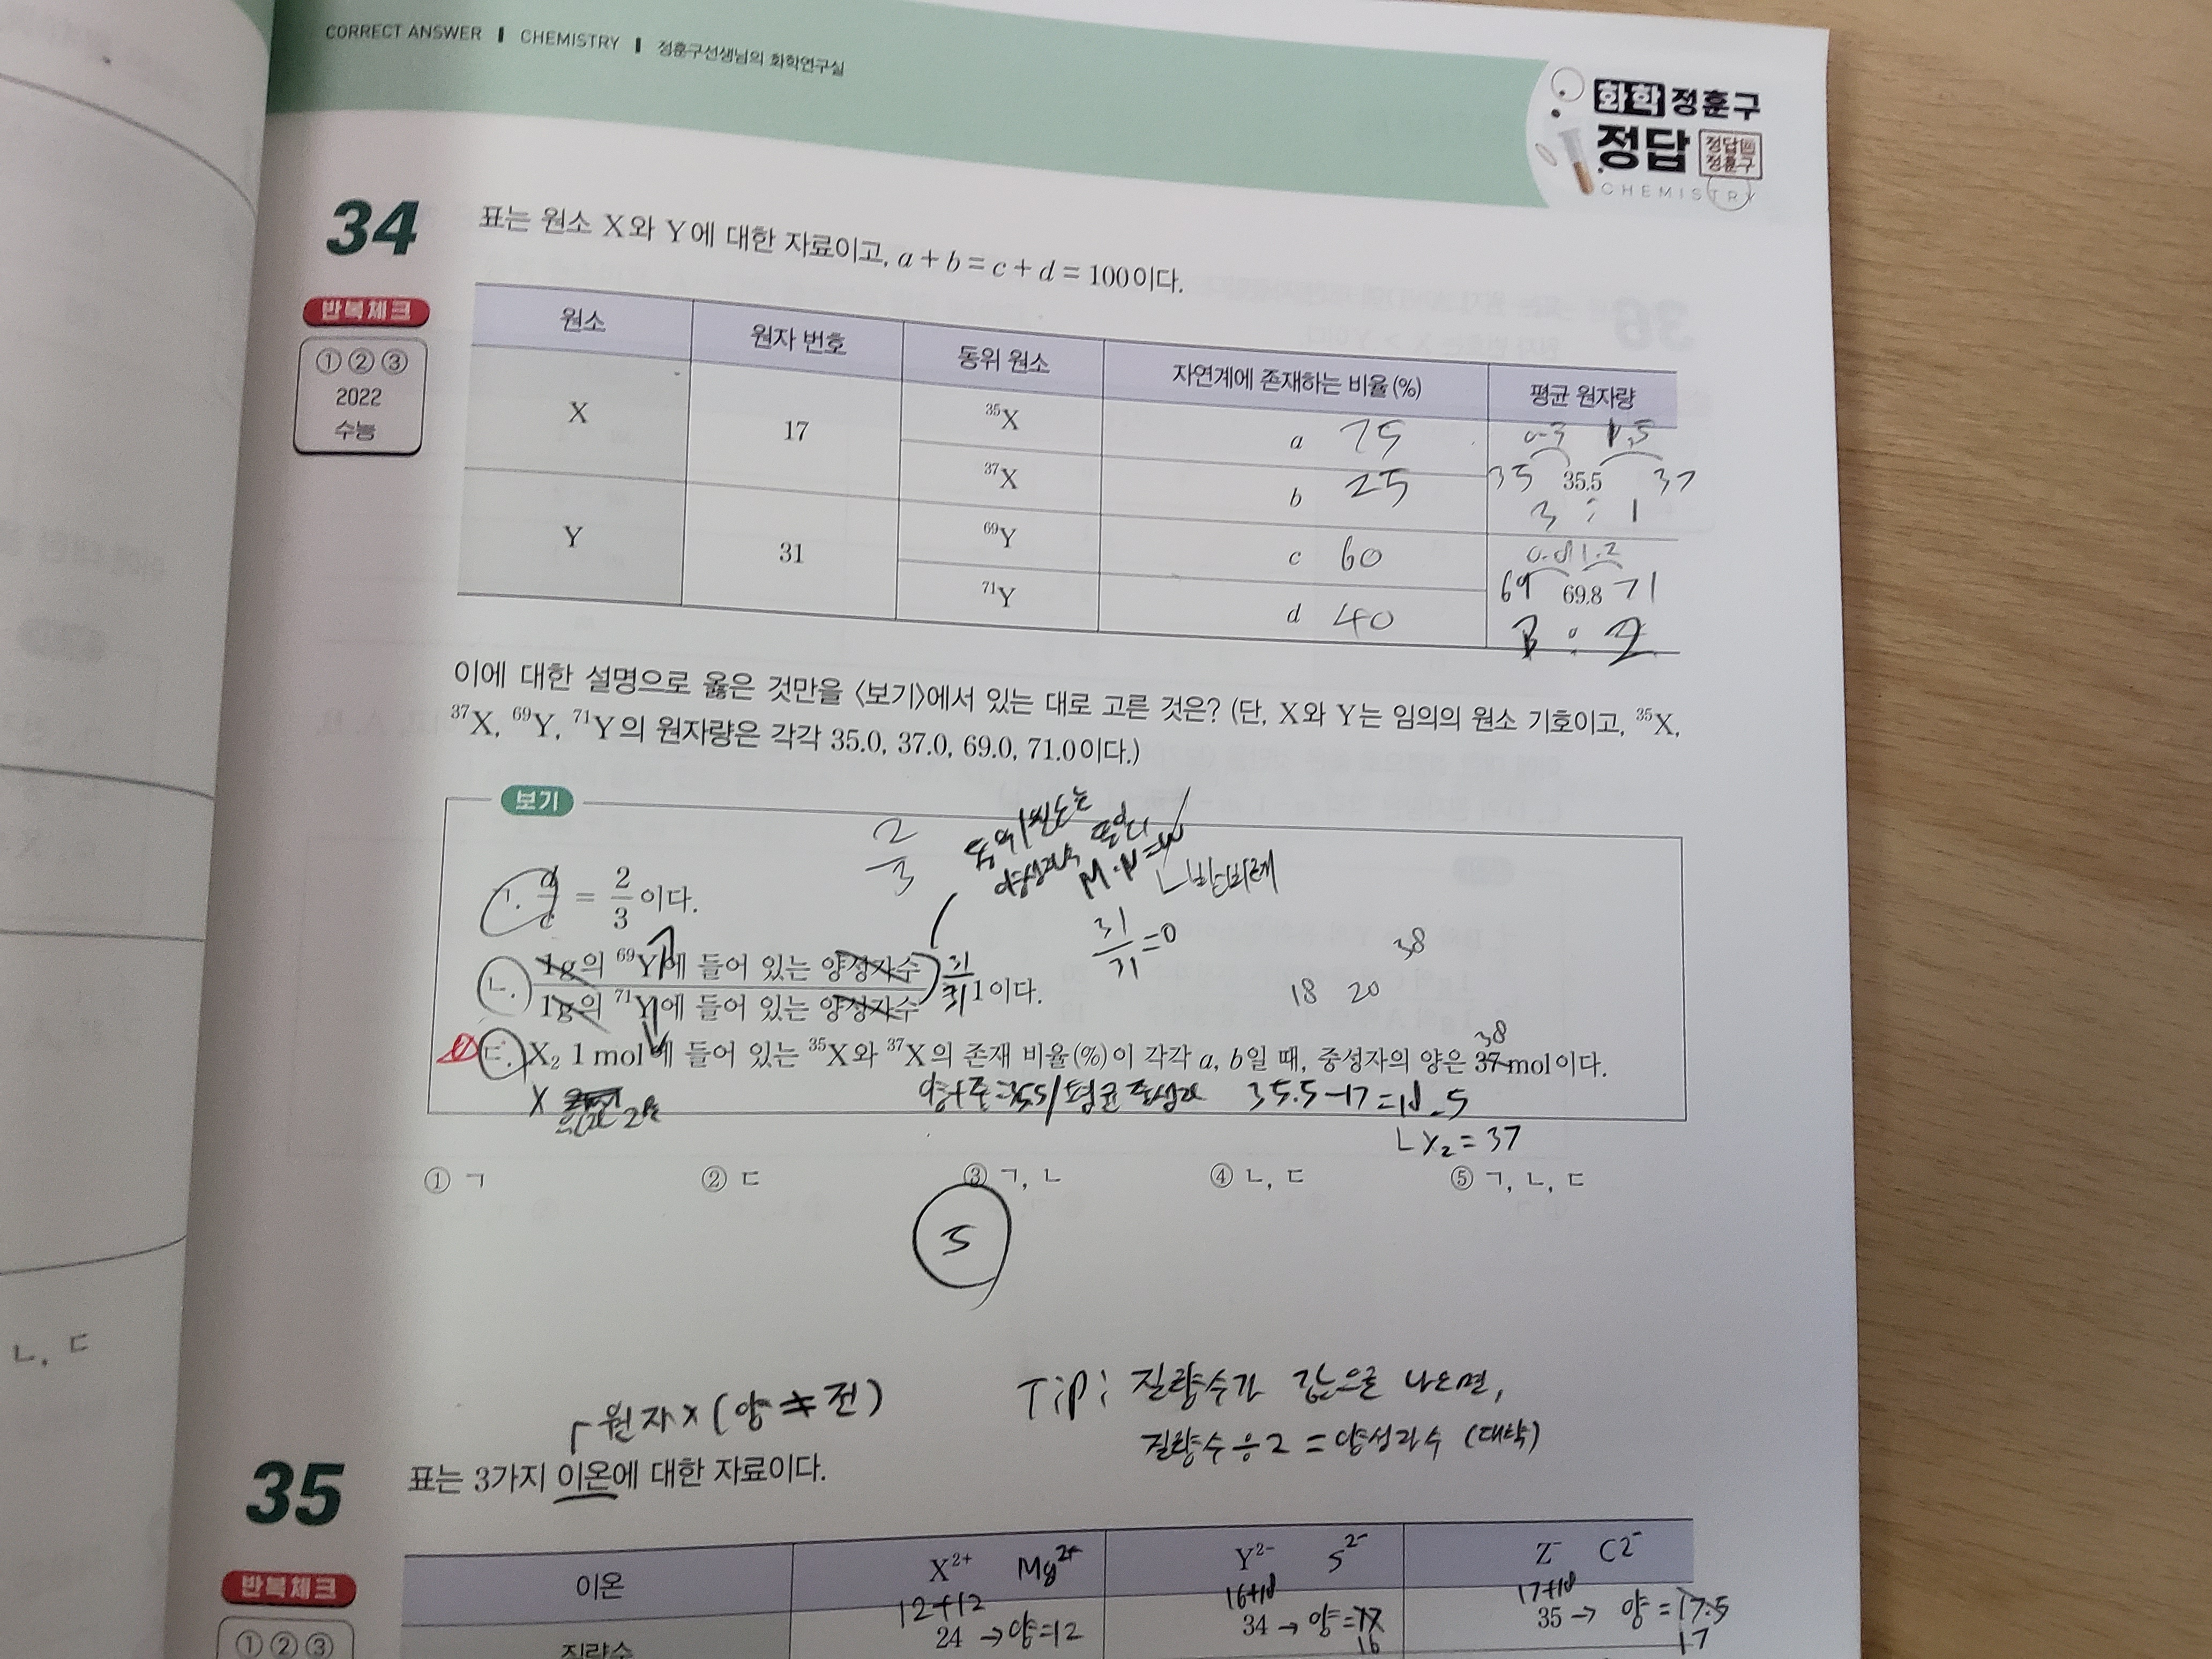 CORRECT ANSWER | CHEMISTRY | 정훈구선생님의 화학연구실
화학 정훈구
정답 정답 정훈구
CHEMISTRY
34
표는 원소 X와 Y에 대한 자료이고, a + b = c + d = 100이다.
반복체크
① ② ③
2022
수능
원소 원자 번호 동위 원소 자연계에 존재하는 비율(%) 평균 원자량
X 17 ³⁵X a 75 35 35.5 37
³⁷X b 25 3 : 1
Y 31 ⁶⁹Y c 60 1.2
69 69.8 71
⁷¹Y d 40 : 2
이에 대한 설명으로 옳은 것만을 〈보기〉에서 있는 대로 고른 것은? (단, X와 Y는 임의의 원소 기호이고, ³⁵X,
³⁷X, ⁶⁹Y, ⁷¹Y의 원자량은 각각 35.0, 37.0, 69.0, 71.0이다.)
보기
2/3
M·N=w
반비례
ㄱ. d/c = 2/3 이다.
31/31 =0
38
ㄴ. 1g의 ⁶⁹Y에 들어 있는 양성자수 / 1g의 ⁷¹Y에 들어 있는 양성자수 31/31 1이다.
18 20
38
ㄷ. X₂ 1 mol에 들어 있는 ³⁵X와 ³⁷X의 존재 비율(%)이 각각 a, b일 때, 중성자의 양은 37 mol이다.
X
35.5-17=18.5
X₂=37
① ㄱ ② ㄷ ③ ㄱ, ㄴ ④ ㄴ, ㄷ ⑤ ㄱ, ㄴ, ㄷ
ㄴ, ㄷ
원자X (양≠전)
Tip: 질량수가 값으로 나오면,
질량수÷2 = 양성자수 (대략)
35
표는 3가지 이온에 대한 자료이다.
반복체크
① ② ③
이온 X²⁺ Mg²⁺ Y²⁻ S²⁻ Z⁻ Cl⁻
12+12 16+18 17+18
질량수 24 →양=12 34 →양=17 16 35 → 양=17.5
17